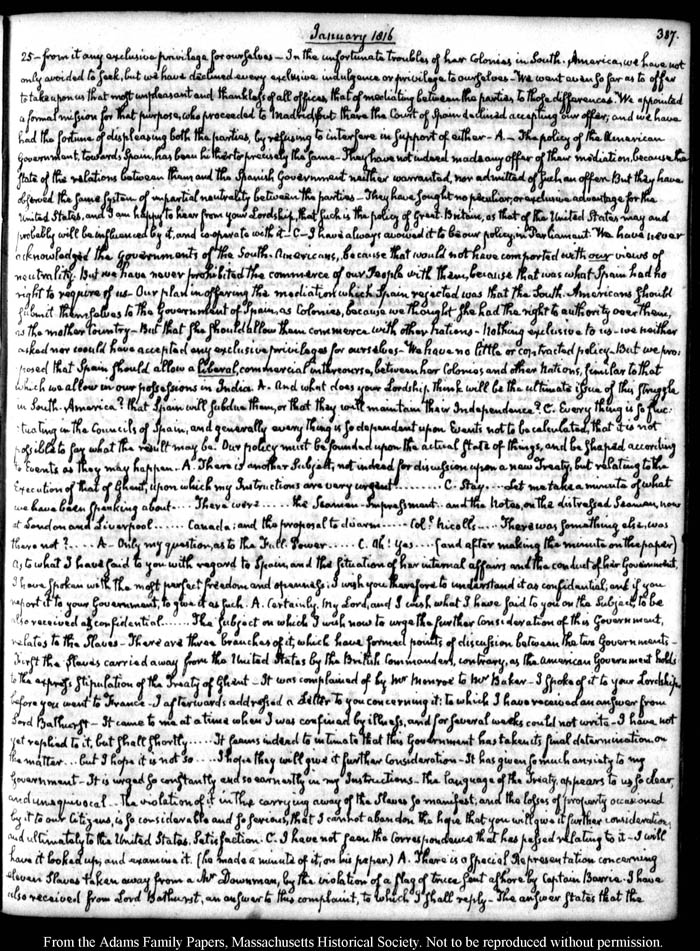 January 1816
387.
25 – from it any exclusive privilege for ourselves – In the unfortunate troubles of her Colonies in South-America, we have not
only avoided to seek, but we have declined every exclusive indulgence or privilege to ourselves – We went even so far as to offer
to take upon us that most unpleasant and thankless of all offices, that of mediating between the parties, to those differences. We appointed
a formal mission for that purpose, who proceeded to Madrid, but there the Court of Spain declined accepting our offer; and we have
had the fortune of displeasing both the parties, by refusing to interfere in support of either – A – The policy of the American
Government, towards Spain, has been hitherto precisely the same – They have not indeed made any offer of their mediation, because the
State of the relations between them and the Spanish Government neither warranted, nor admitted of such an offer. But they have
observed the same System of impartial neutrality between the parties – They have sought no peculiar, or exclusive advantage for the
United States, and I am happy to hear from your Lordship, that such is the policy of Great Britain, as that of the United States may and
probably will be influenced by it, and co-operate with it – C – I have always avowed it to be our policy, in Parliament. We have never
acknowledged the Governments of the South-Americans, because that would not have comported with our views of
neutrality. But we have never prohibited the commerce of our People with them, because that was what Spain had no
right to require of us – Our plan in offering the mediation which Spain rejected was that the South-Americans should
submit themselves to the Government of Spain, as Colonies, because we thought she had the right to authority over them,
as the mother Country – But that she should allow them commerce with other Nations – Nothing exclusive to us – we neither
asked nor would have accepted any exclusive privileges for ourselves – We have no little or contracted policy – But we pro-
posed that Spain should allow a liberal, commercial intercourse, between her Colonies and other Nations, similar to that
which we allow in our possessions in India. A. And what does your Lordship think will be the ultimate issue of this struggle
in South-America? that Spain will subdue them, or that they will maintain their Independence? C. Every thing is so fluc-
tuating in the Councils of Spain, and generally every thing is so dependent upon Events not to be calculated, that it is not
possible to say what the result may be. Our policy must be founded upon the actual State of things, and be shaped according
to Events as they may happen. A. There is another Subject, not indeed for discussion upon a new Treaty, but relating to the
execution of that of Ghent, upon which my Instructions are very urgent ......... C. Stay .... Let me take a minute of what
we have been speaking about .... There were ..... the Seamen-Impressment.. and the Notes, on the distressed Seamen, now
at London and Liverpool ...... Canada; and the proposal to disarm ..... Coll. Nicolls .... There was something else, was
there not? .... A – Only my question, as to the Full-Power ..... C. Ah! Yes .... (and after making the minute on the paper)
As to what I have said to you with regard to Spain, and the situation of her internal affairs and the conduct of her Government,
I have spoken with the most perfect freedom and openness; I wish you therefore to understand it as confidential, and if you
report it to your Government, to give it as such. A. Certainly, My Lord, and I wish what I have said to you on the Subject, to be
also received as confidential ..... The Subject on which I wish now to urge the further Consideration of this Government,
relates to the Slaves – There are three branches of it, which have formed points of discussion between the two Governments –
First the Slaves carried away from the United States by the British Commanders, contrary, as the American Government holds
to the express stipulation of the Treaty of Ghent – It was complained of by Mr Monroe to Mr Baker – I spoke of it to your Lordship,
before you went to France – I afterwards addressed a Letter to you concerning it; to which I have received an answer from
Lord Bathurst – It came to me at a time when I was confined by illness, and for several weeks could not write – I have not
yet replied to it, but shall shortly ..... It seems indeed to intimate that this Government has taken its final determination on
the matter ... but I hope it is not so .... I hope they will give it further Consideration – It has given so much anxiety to my
Government – It is urged so constantly and so earnestly in my Instructions – the language of the Treaty, appears to us so clear
and unequivocal – The violation of it in this carrying away of the Slaves so manifest; and the losses of property occasioned
by it to our Citizens, is so considerable and so serious, that I cannot abandon the hope that you will give it further consideration,
and ultimately to the United States, Satisfaction. C. I have not seen the Correspondence that has passed relating to it – I will
have it looked up, and examine it. (he made a minute of it, on his paper) A. There is a Special Representation concerning
eleven Slaves taken away from a Mr Downman, by the violation of a flag of truce sent ashore by Captain Barrie. I have
also received from Lord Bathurst, an answer to this complaint, to which I shall reply. The answer states that the
From the Adams Family Papers, Massachusetts Historical Society. Not to be reproduced without permission.